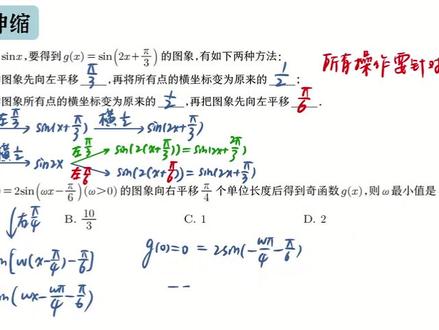 伸缩
sinx,要得到g(x)=sin(2x+π/3)的图象,有如下两种方法:
图象先向左平移 π/3 ,再将所有点的横坐标变为原来的 1/2 ;
图象所有点的横坐标变为原来的 1/2 ,再把图象先向左平移 π/6 .
所有操作要针对
左π/3 sin(x+π/3) 横1/2 sin(2x+π/3)
横1/2 sin2x 左π/3 sin(2(x+π/3))=sin(2x+2π/3)
左π/6 sin(2(x+π/6))=sin(2x+π/3)
=2sin(ωx-π/6)(ω>0)的图象向右平移π/4个单位长度后得到奇函数g(x),则ω最小值是
B. 10/3 C. 1 D. 2
右π/4
[ω(x-π/4)-π/6]
(ωx-ωπ/4-π/6)
g(0)=0=2sin(-ωπ/4-π/6)